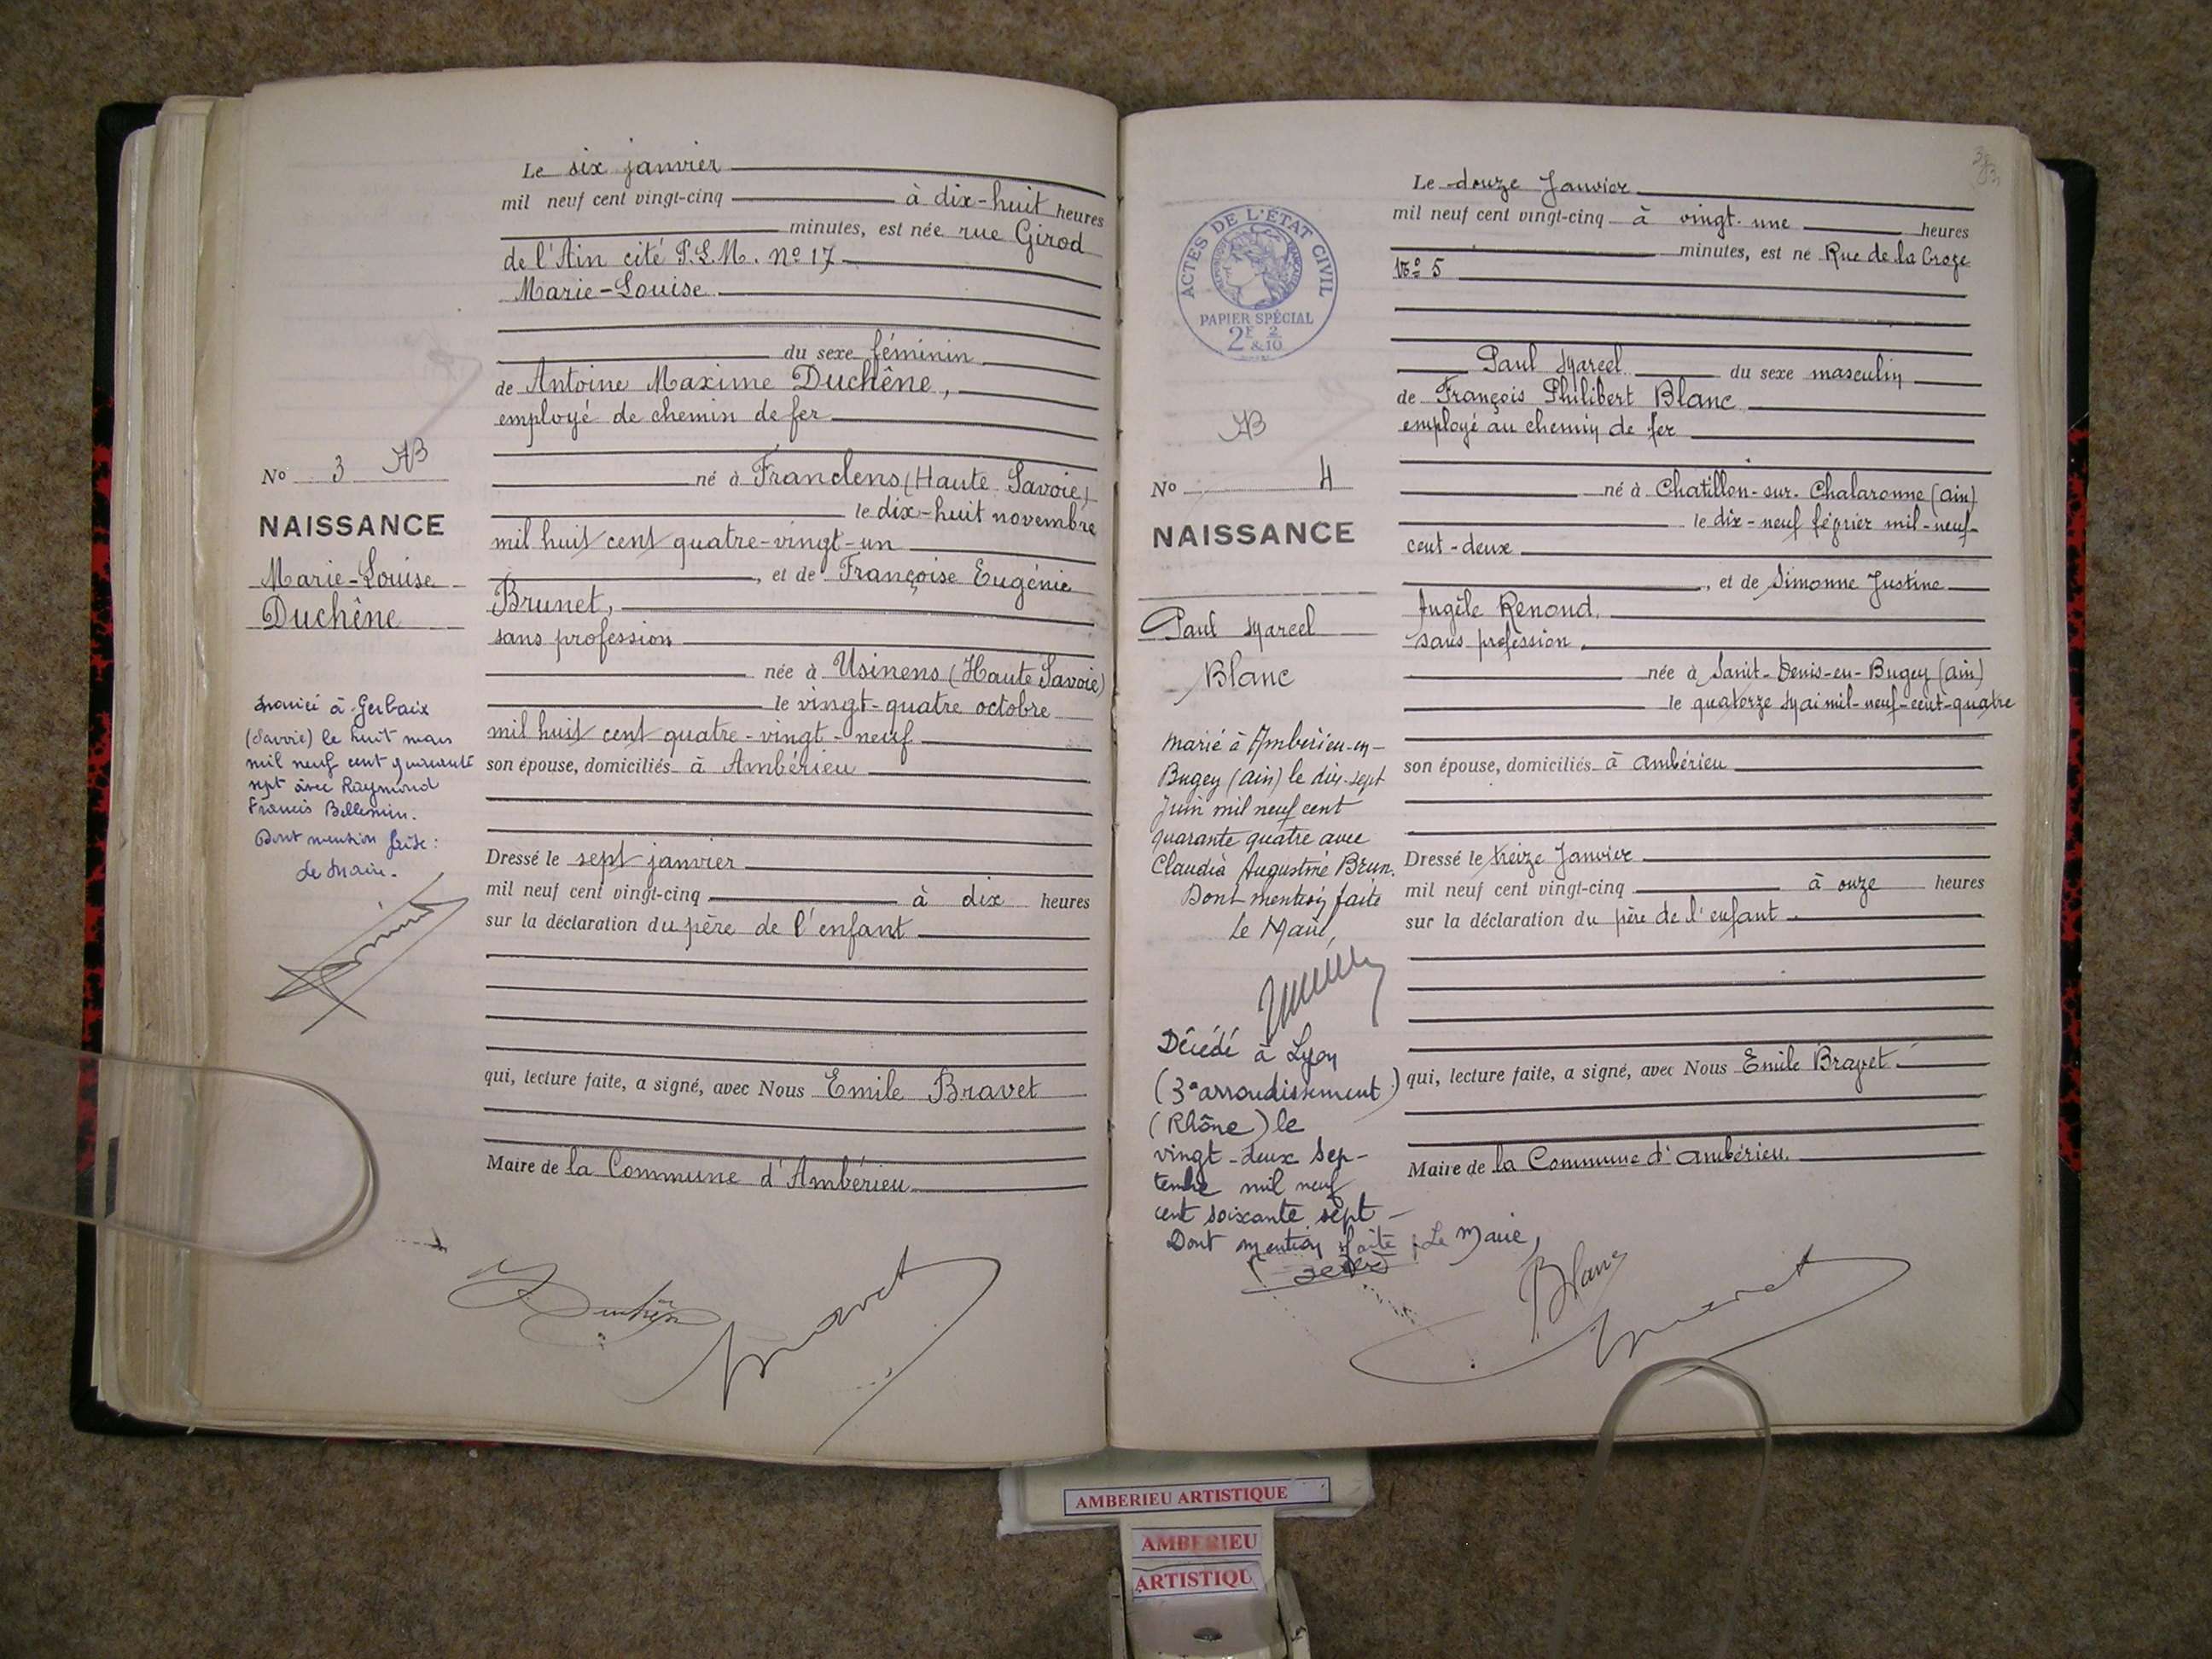 Le six janvier
mil neuf cent vingt-cinq à dix-huit heures
minutes, est née rue Girod
de l'Ain cité P.L.M. nº 17
Marie-Louise
du sexe féminin
de Antoine Maxime Duchêne,
employé de chemin de fer
né à Franclens (Haute Savoie)
le dix-huit novembre
mil huit cent quatre-vingt-un
, et de Françoise Eugénie
Brunet,
sans profession
née à Usinens (Haute Savoie)
le vingt-quatre octobre
mil huit cent quatre-vingt-neuf
son épouse, domiciliés à Ambérieu
Dressé le sept janvier
mil neuf cent vingt-cinq à dix heures
sur la déclaration du père de l'enfant
qui, lecture faite, a signé, avec Nous Emile Bravet
Maire de la Commune d'Ambérieu
Duchêne
Bravet
AB
No 3
NAISSANCE
Marie-Louise
Duchêne
Mariée à Gerbaix
(Savoie) le huit mars
mil neuf cent quarante
sept avec Raymond
Francis Bellemin.
Dont mention faite :
Le Maire.
Le douze Janvier
mil neuf cent vingt-cinq à vingt-une heures
minutes, est né Rue de la Croze
Nº 5
Paul Marcel du sexe masculin
de François Philibert Blanc
employé au chemin de fer
né à Chatillon-sur-Chalaronne (ain)
le dix-neuf février mil-neuf-
cent-deux
, et de Simonne Justine
Angèle Renoud.
sans profession.
née à Sanit-Denis-en-Bugey (ain)
le quatorze Mai mil-neuf-cent-quatre
son épouse, domiciliés à Ambérieu
Dressé le treize Janvier
mil neuf cent vingt-cinq à onze heures
sur la déclaration du père de l'enfant
qui, lecture faite, a signé, avec Nous Emile Bravet.
Maire de la Commune d'Ambérieu.
Blanc
Bravet
ACTES DE L'ÉTAT CIVIL
PAPIER SPÉCIAL
2F 2
&10
AB
No 4
NAISSANCE
Paul Marcel
Blanc
Marié à Ambérieu-en-
Bugey (Ain) le dix-sept
Juin mil neuf cent
quarante quatre avec
Claudia Augustine Brun.
Dont mention faite
Le Maire,
Décédé à Lyon
(3e arrondissement)
(Rhône) le
vingt-deux Sep-
tembre mil neuf
cent soixante sept -
Dont mention faite, Le Maire,
AMBERIEU ARTISTIQUE
AMBERIEU
ARTISTIQU